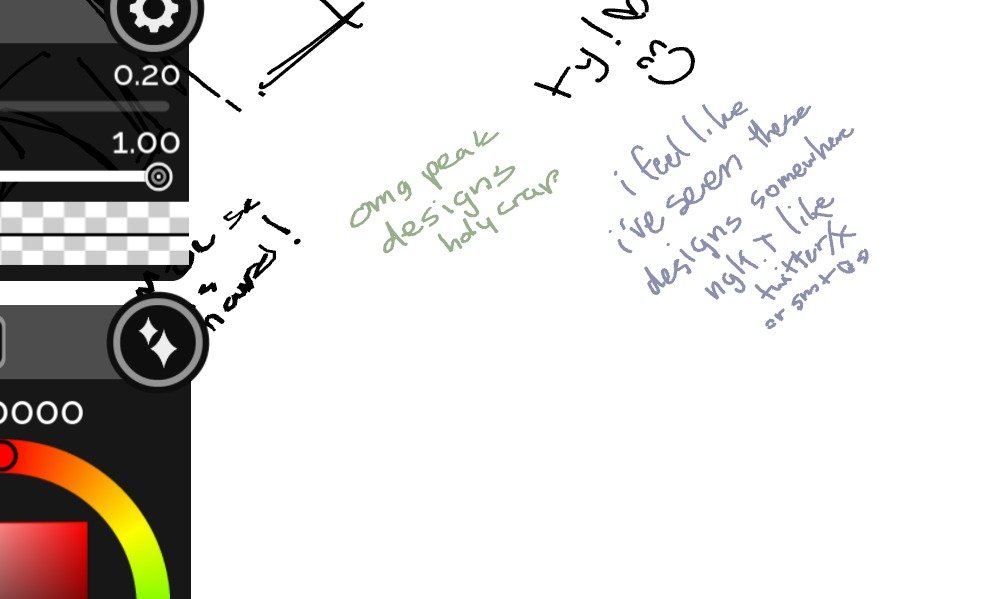 0.20
1.00
0000
ty!
:3
omg peak
designs
holy crap
i feel like
i've seen these
designs somewhere
ngl.. like
twitter/x
or smt
is
hard!